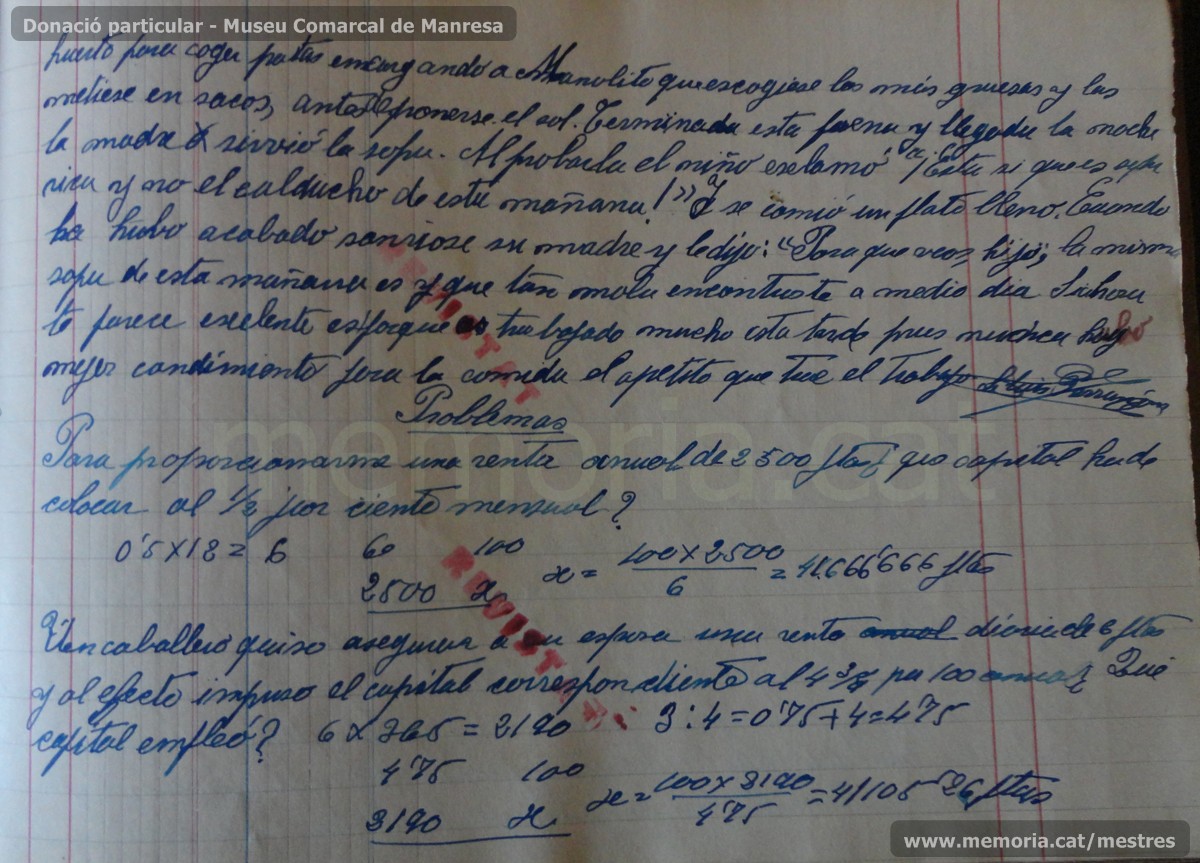 Donació particular - Museu Comarcal de Manresa
huerto para coger patas encargando a Manolito que escogiese las más gruesas y las
metiese en sacos, antes ponerse el sol. Terminada esta faena y llegada la noche
la madre sirvió la sopa. Al probarla el niño exclamó "¡Esta si que es sopa
rica y no el calducho de esta mañana!" Y se comió un plato lleno. Cuando
hubo acabado sonriose su madre y le dijo: "Para que veas, hijo, la misma
sopa de esta mañana es y que tan mala encontraste a medio dia. Si ahora
te parece exelente es porque as trabajado mucho esta tarde pues nunca hay
mejor condimiento para la comida el apetito que trae el trabajo
REVISTAT
Problemas
Para proporcionarme una renta anual de 2500 ptas ¿que capital he de
colocar al 1/2 por ciento mensual?
0'5 x 12 = 6 6 100 x = 100 x 2500 / 6 = 41.666'666 ptas
2500 x
REVISTAT
Un caballero quiso asegurar a su esposa una renta anual diaria de 6 ptas
y al efecto impuso el capital correspondiente al 4 3/4 por 100 anual ¿Qué
capital empleó? 6 x 365 = 2190 3 : 4 = 0'75 + 4 = 4'75
4'75 100 x = 100 x 2190 / 4'75 = 41105'26 ptas
2190 x
memoria.cat
www.memoria.cat/mestres